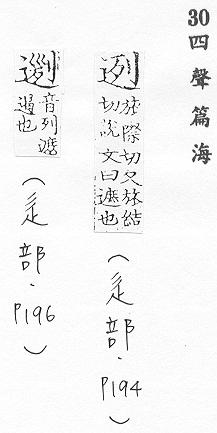 30 四聲篇海
迾
旅際切又旅結
切說文曰遮也
(辵部.P194)
音列遮
遏也
(辵部.P196)